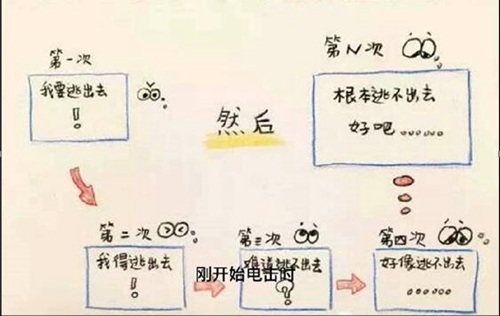 第一次
我要逃出去
!
第二次
我得逃出去
!
第三次
难道逃不出去
?
第四次
好像逃不出去
......
第N次
根本逃不出去
好吧......
然后
刚开始电击时